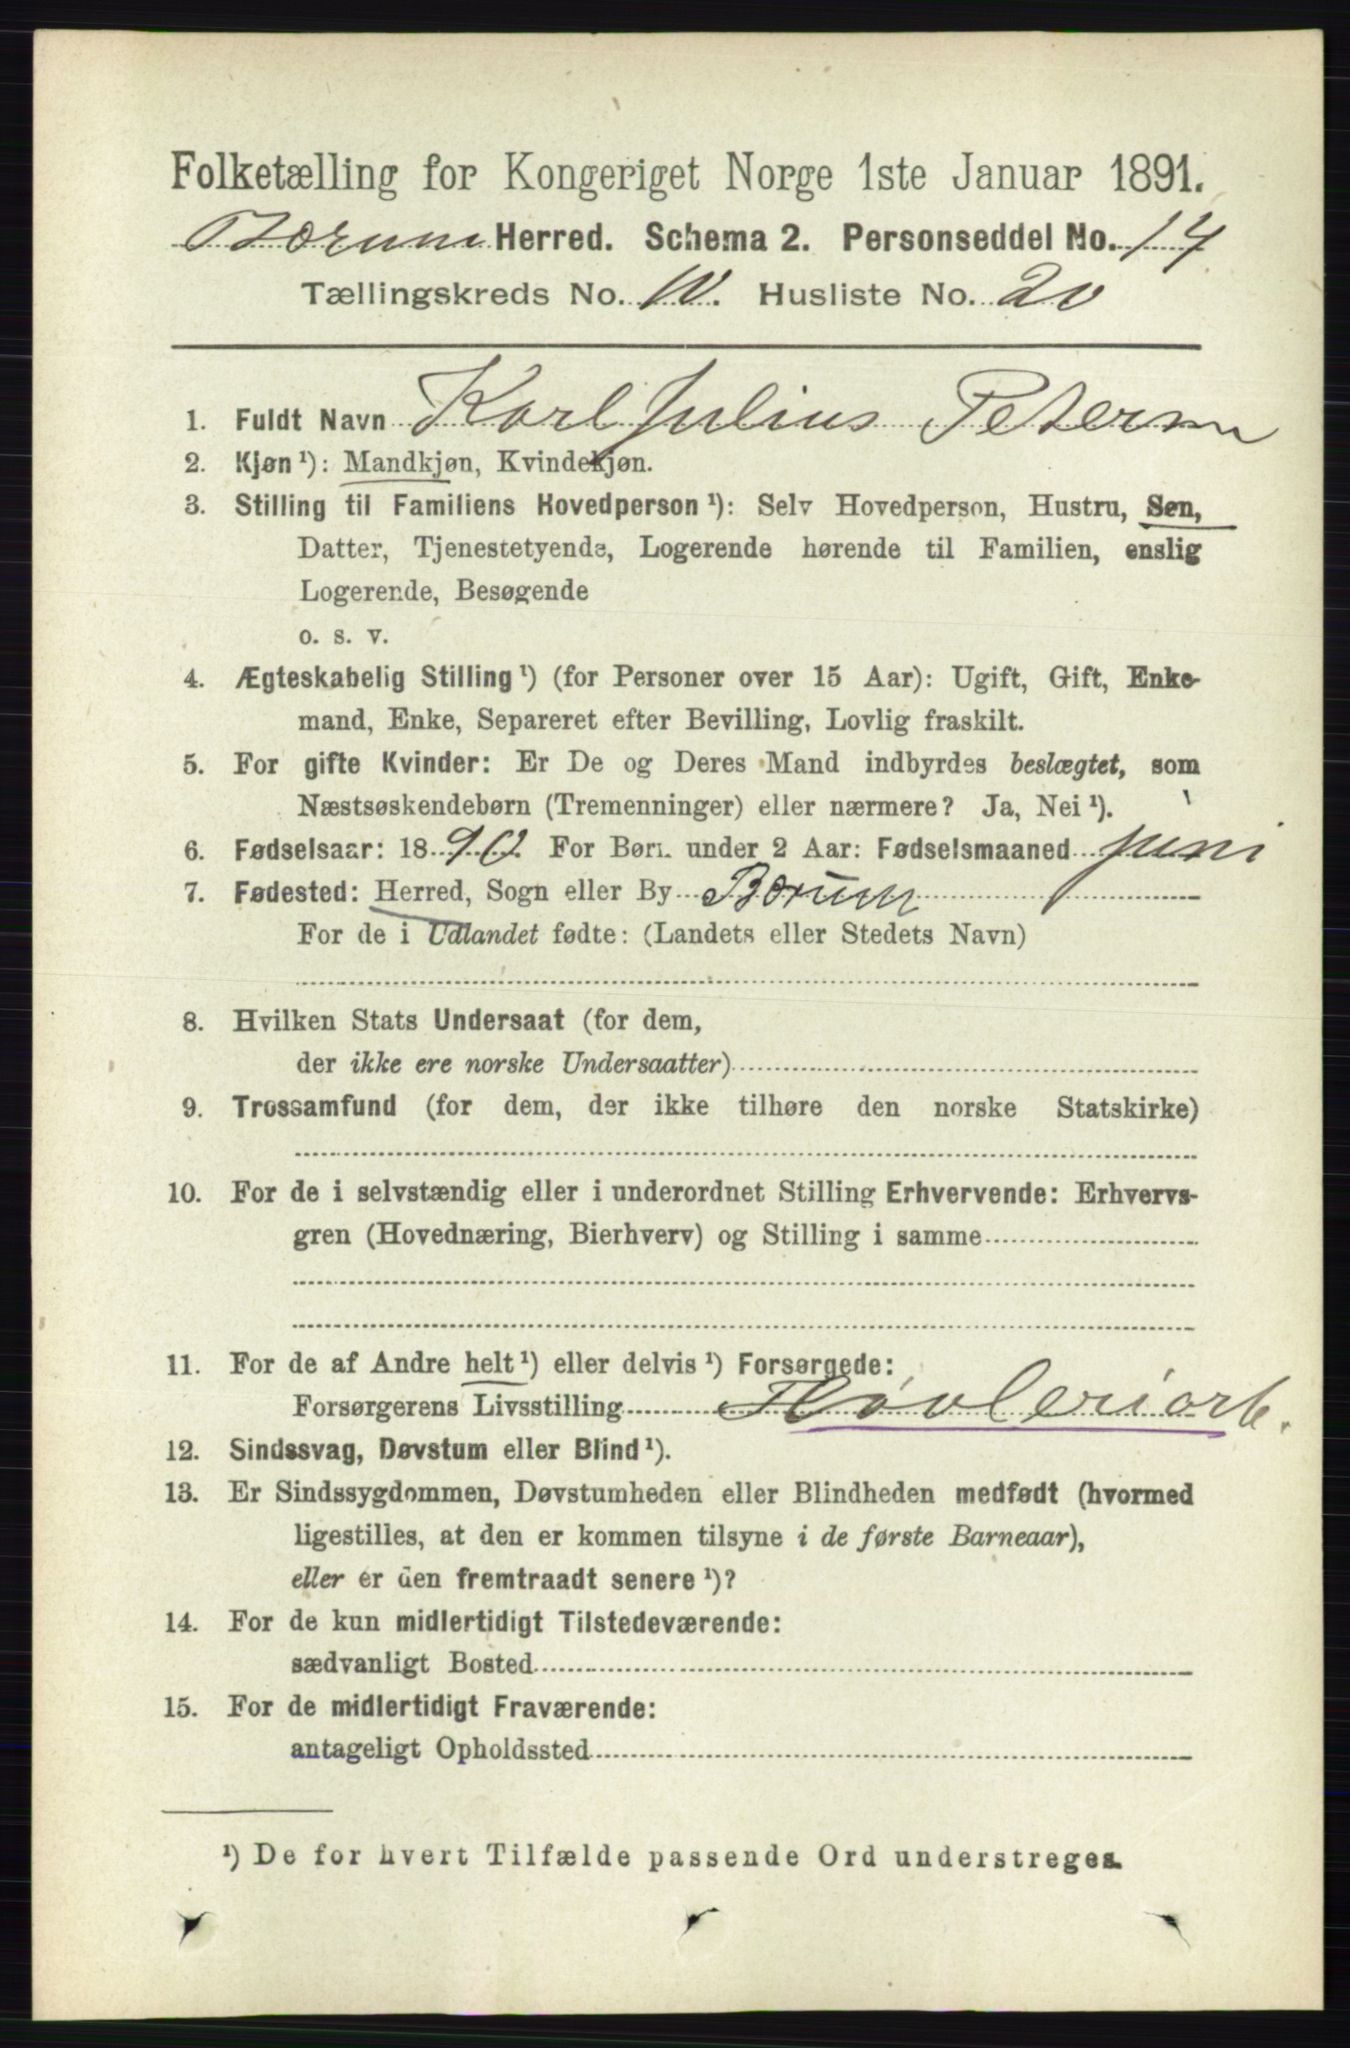 Folketælling for Kongeriget Norge 1ste Januar 1891.
Bærum Herred. Schema 2. Personseddel No. 14
Tællingskreds No. 10. Husliste No. 20
1. Fuldt Navn Karl Julius Petersen
2. Kjøn ¹): Mandkjøn, Kvindekjøn.
3. Stilling til Familiens Hovedperson ¹): Selv Hovedperson, Hustru, Søn,
Datter, Tjenestetyende, Logerende hørende til Familien, enslig
Logerende, Besøgende
o. s. v.
4. Ægteskabelig Stilling ¹) (for Personer over 15 Aar): Ugift, Gift, Enke-
mand, Enke, Separeret efter Bevilling, Lovlig fraskilt.
5. For gifte Kvinder: Er De og Deres Mand indbyrdes beslægtet, som
Næstsøskendebørn (Tremenninger) eller nærmere? Ja, Nei ¹).
6. Fødselsaar: 1890. For Børn under 2 Aar: Fødselsmaaned juni
7. Fødested: Herred, Sogn eller By Bærum
For de i Udlandet fødte: (Landets eller Stedets Navn)
8. Hvilken Stats Undersaat (for dem,
der ikke ere norske Undersaatter)
9. Trossamfund (for dem, der ikke tilhøre den norske Statskirke)
10. For de i selvstændig eller i underordnet Stilling Erhvervende: Erhvervs-
gren (Hovednæring, Bierhverv) og Stilling i samme
11. For de af Andre helt ¹) eller delvis ¹) Forsørgede:
Forsørgerens Livsstilling Høvleriarb.
12. Sindssvag, Døvstum eller Blind ¹).
13. Er Sindssygdommen, Døvstumheden eller Blindheden medfødt (hvormed
ligestilles, at den er kommen tilsyne i de første Barneaar),
eller er den fremtraadt senere ¹)?
14. For de kun midlertidigt Tilstedeværende:
sædvanligt Bosted
15. For de midlertidigt Fraværende:
antageligt Opholdssted
¹) De for hvert Tilfælde passende Ord understreges.